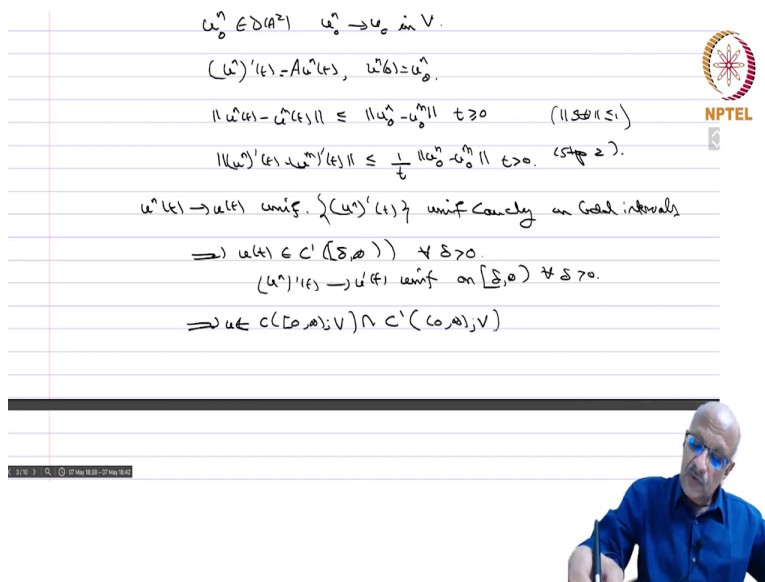 u₀ⁿ ∈ D(A²) u₀ⁿ → u₀ in V.
(uⁿ)'(t) = Auⁿ(t), uⁿ(0) = u₀ⁿ.
‖uⁿ(t) - uᵐ(t)‖ ≤ ‖u₀ⁿ - u₀ᵐ‖ t ≥ 0 (‖S(t)‖ ≤ 1)
‖(uⁿ)'(t) - (uᵐ)'(t)‖ ≤ 1/t ‖u₀ⁿ - u₀ᵐ‖ t > 0. (step 2).
NPTEL
uⁿ(t) → u(t) unif. {(uⁿ)'(t)} unif Cauchy on bdd intervals
⟹ u(t) ∈ C'([δ,∞)) ∀ δ > 0.
(uⁿ)'(t) → u'(t) unif on [δ,∞) ∀ δ > 0.
⟹ u ∈ C([0,∞);V) ∩ C'((0,∞);V)
3 / 10 07 May 18:38 - 07 May 18:42